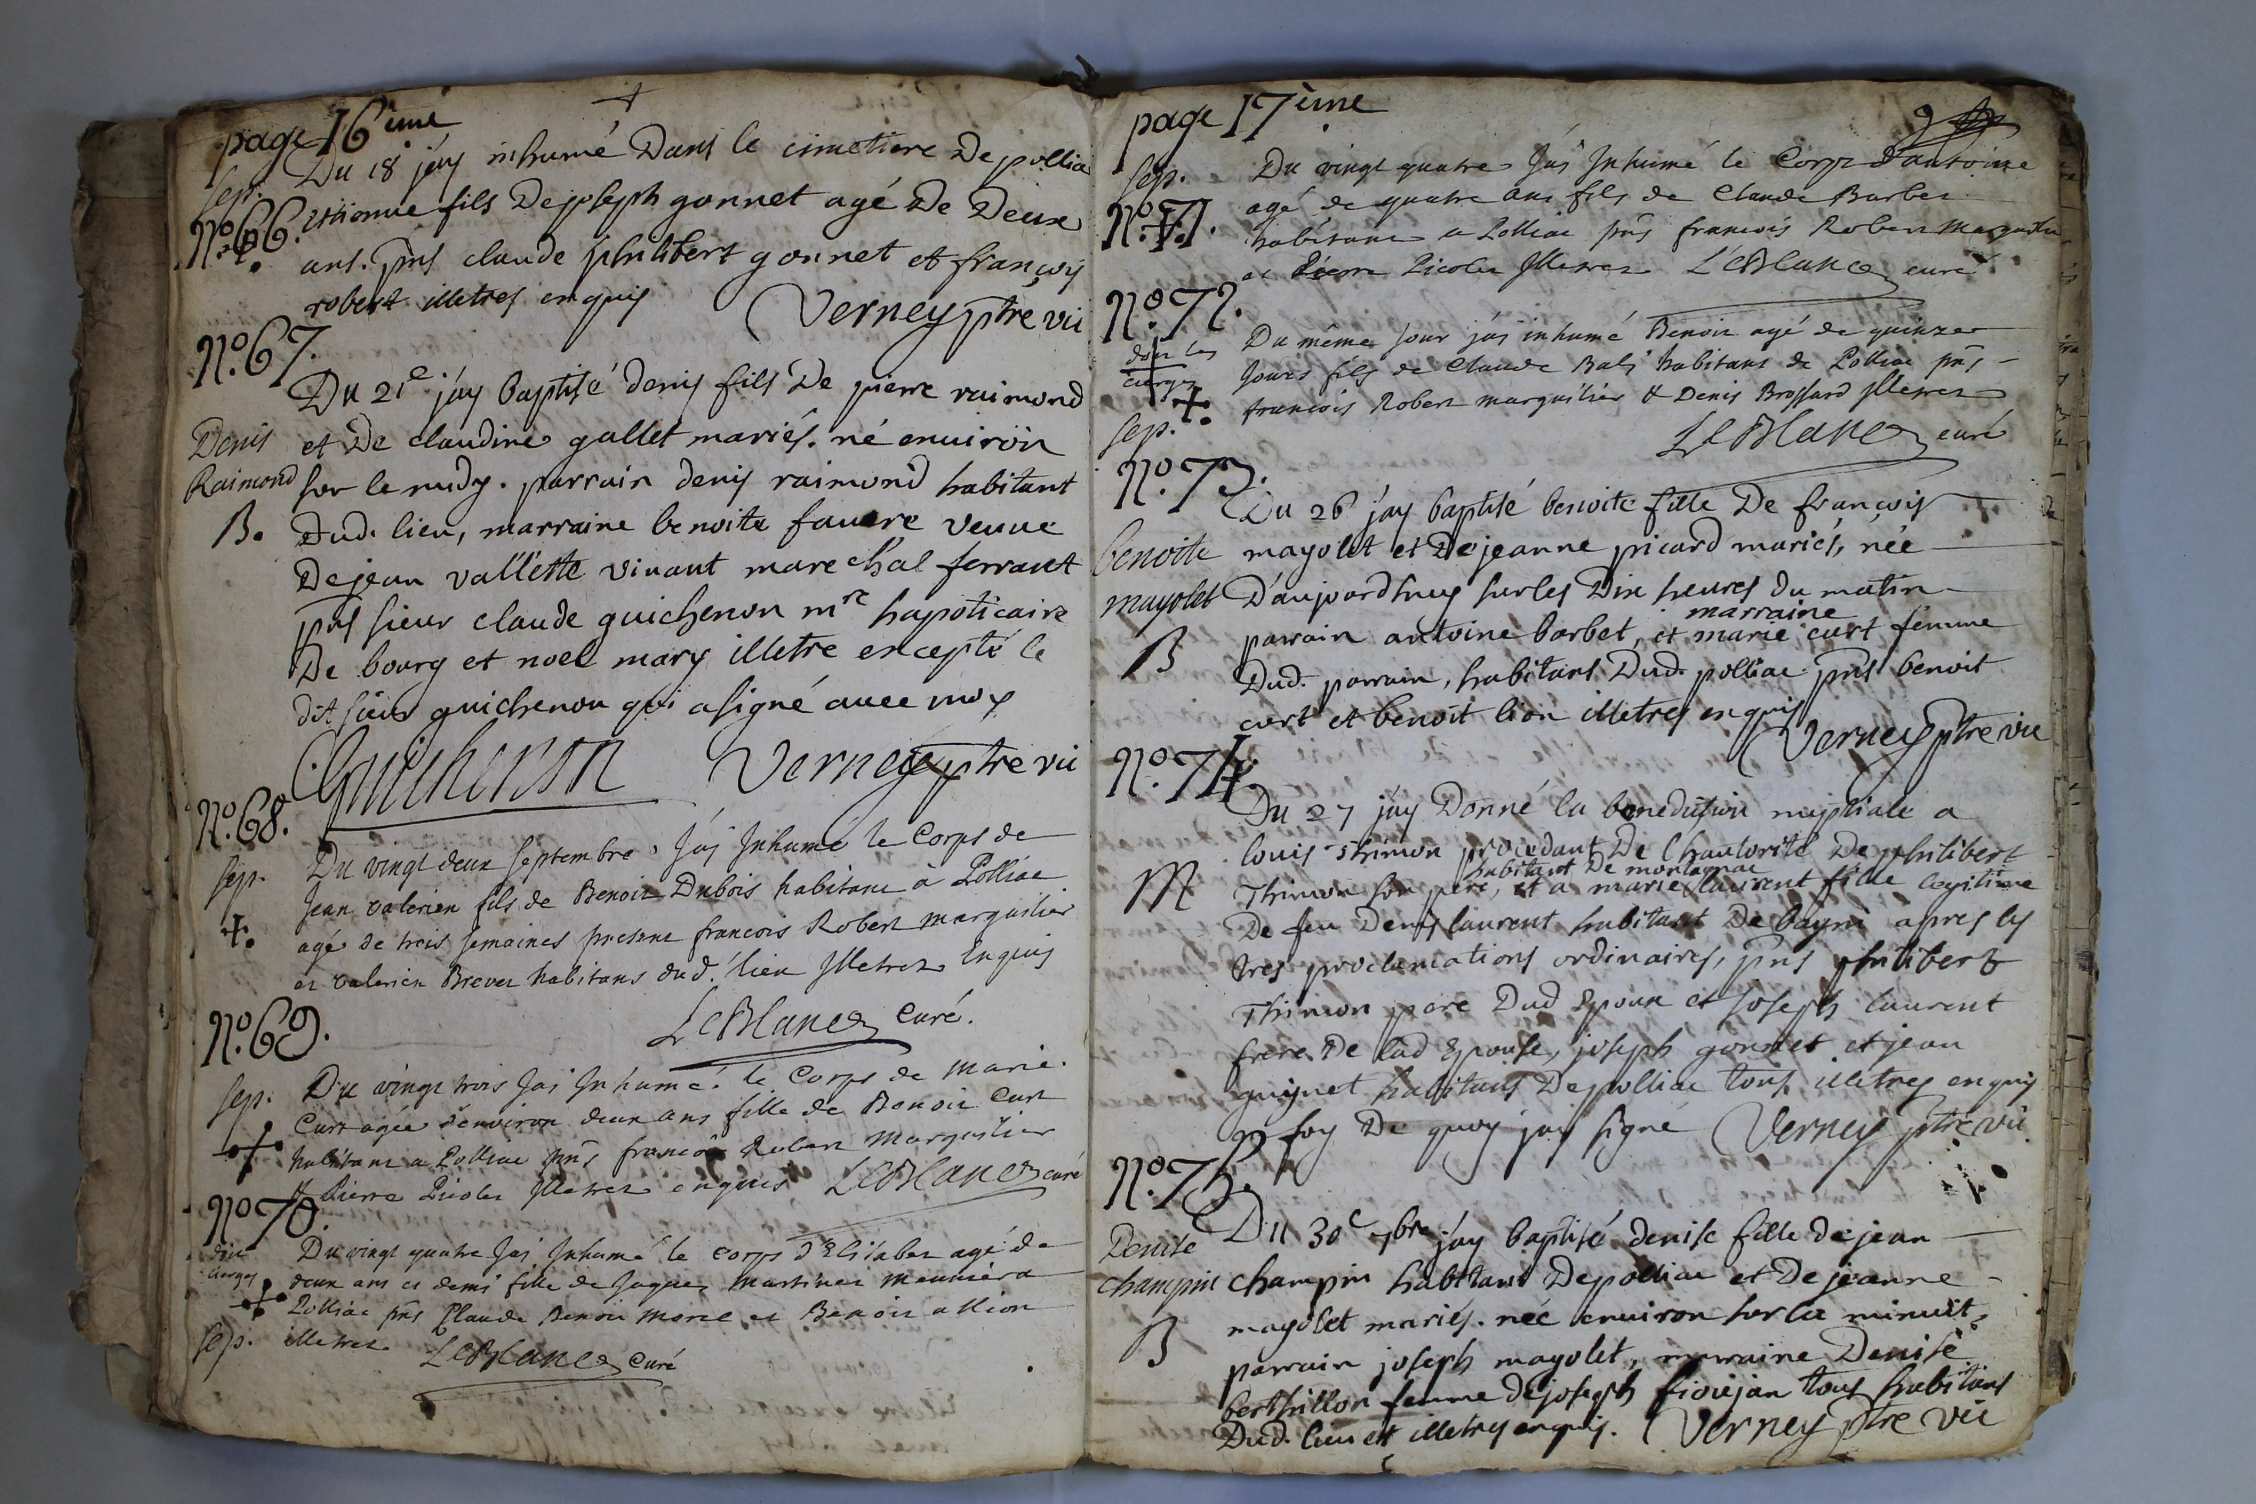 page 16 eme
sep.
N.º 66.
Du 18 j'ay inhumé Dans le cimetiere De pollia
estienne fils De joseph gonnet agé De Deux
ans. pns claude philibert gonnet et françois
robert illetres enquis Verney ptre vic
N.º 67.
Denis
Raimond
B.
Du 21e j'ay baptisé denis fils De pierre raimond
et De claudine gallet mariés. né environ
sur le midy. parrain denis raimond habitant
Dud. lieu, marraine benoite favere veuve
De jean vallette vivant marechal ferrant
pns sieur claude guichenon mre hapoticaire
De bourg et noel mary illetre excepté le
dit sieur guichenon qui a signé avec moy
Guichenon Verney ptre vic
N.º 68.
sep.
Du vingt deux septembre j'ai Inhumé le Corps de
Jean valerien fils de Benoit Dubois habitant à Polliac
agé de trois semaines present francois Robert marguilier
et valerien Brevet habitans dud. lieu Illetrez Enquis
LeBlanc Curé.
N.º 69.
sep.
Du vingt trois J'ai Inhumé le Corps de Marie
Curt agée d'environ deux ans fille de Benoit Curt
habitant a Polliac pns francois Robert Marguilier
& Pierre Picolet Illetrez enquis LeBlanc curé
N.º 70.
dix
cierges
sep.
Du vingt quatre J'ai Inhumé le corps d'Elisabet agé de
deux ans et demi fille de Jaques Martinet meunier a
Polliac pns Claude Benoit Morel et Benoit allion
illetrez LeBlanc Curé
page 17 ème
9
sep.
N.º 71.
Du vingt quatre J'ai Inhumé le Corps d'antoine
agé de quatre ans fils de Claude Barbet
habitant a Polliac pns francois Robert Marguilier
et Pierre Picolet Illetrez LeBlanc curé
N.º 72.
cierges
sep.
Du même jour j'ai inhumé Benoit agé de quinze
Jours fils de Claude Bali habitant de Polliac pns
francois Robert marguilier & Denis Brossard Illetrez
LeBlanc curé
N.º 73.
benoite
mayolet
B
Du 26 j'ay baptisé benoite fille De françois
mayolet et De jeanne picard mariés, née
D'aujourdhuy sur les Dix heures du matin
marraine
parrain antoine barbet, et marie curt femme
Dud. parrain, habitans Dud. polliac pns benoit
curt et benoit lion illetres enquis
Verney ptre vic
N.º 74
M
Du 27 j'ay Donné la benediction nuptiale a
louis Thimon procedant De l'hautorité De philibert
habitant De montagnac
Thimon son pere, et a marie laurent fille legitime
De feu Denis laurent habitant De bagni apres les
tres proclamations ordinaires, pns philibert
Thimon pere Dud Epoux et Joseph laurent
frere De lad Epouse, joseph gonnet et jean
guignet habitans De polliac tous illetres enquis
En foy De quoy j'ay signé Verney ptre vic
N.º 75.
Denise
champin
B
Du 30e 7bre j'ay baptisé denise fille de jean
champin habitant De polliac et De jeanne
mayolet mariés. née environ sur la minuit,
parrain joseph mayolet, marraine Denise
berthillon femme de joseph fioujan tous habitans
Dud. lieu et illetres enquis. Verney ptre vic